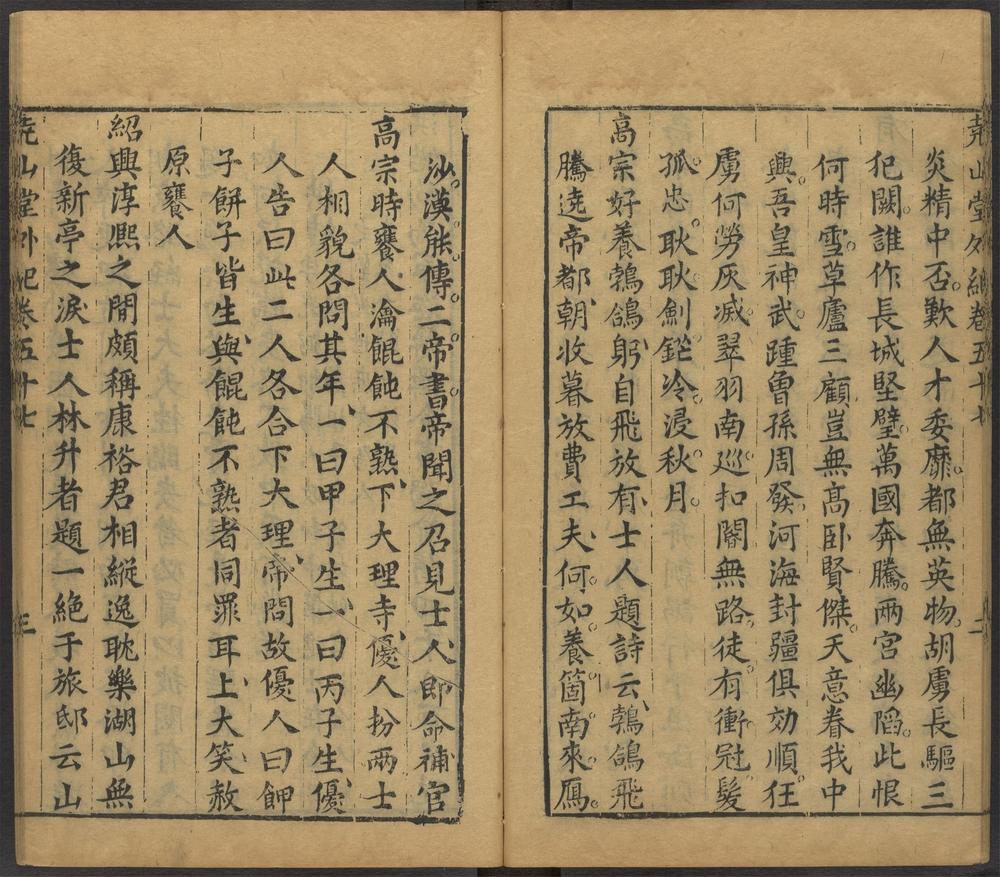 堯山堂外紀卷五十七 二
炎精中否。歎人才委靡。都無英物。胡虜長驅三
犯闕。誰作長城堅壁。萬國奔騰。兩宮幽陷。此恨
何時雪。草廬三顧。豈無高臥賢傑。天意眷我中
興。吾皇神武。踵曾孫周發。河海封疆俱効順。狂
虜何勞灰滅。翠羽南巡。扣閽無路。徒有衝冠髮。
孤忠耿耿。劍鋩冷浸秋月。
高宗好養鵓鴿、躬自飛放、有士人題詩云、鵓鴿飛
騰遶帝都、朝收暮放費工夫、何如養箇南來鴈。
沙漠能傳二帝書。帝聞之召見士人、即命補官
高宗時、饔人瀹餛飩不熟、下大理寺、優人扮兩士
人相貌各問其年、一曰甲子生、一曰丙子生、優
人告曰、此二人各合下大理、帝問故、優人曰、餁
子餅子皆生、與餛飩不熟者同罪耳、上大笑、赦
原饔人
紹興淳熙之間頗稱康裕君相縱逸耽樂湖山無
復新亭之淚士人林升者題一絕于旅邸云山
堯山堂外紀卷五十七 三